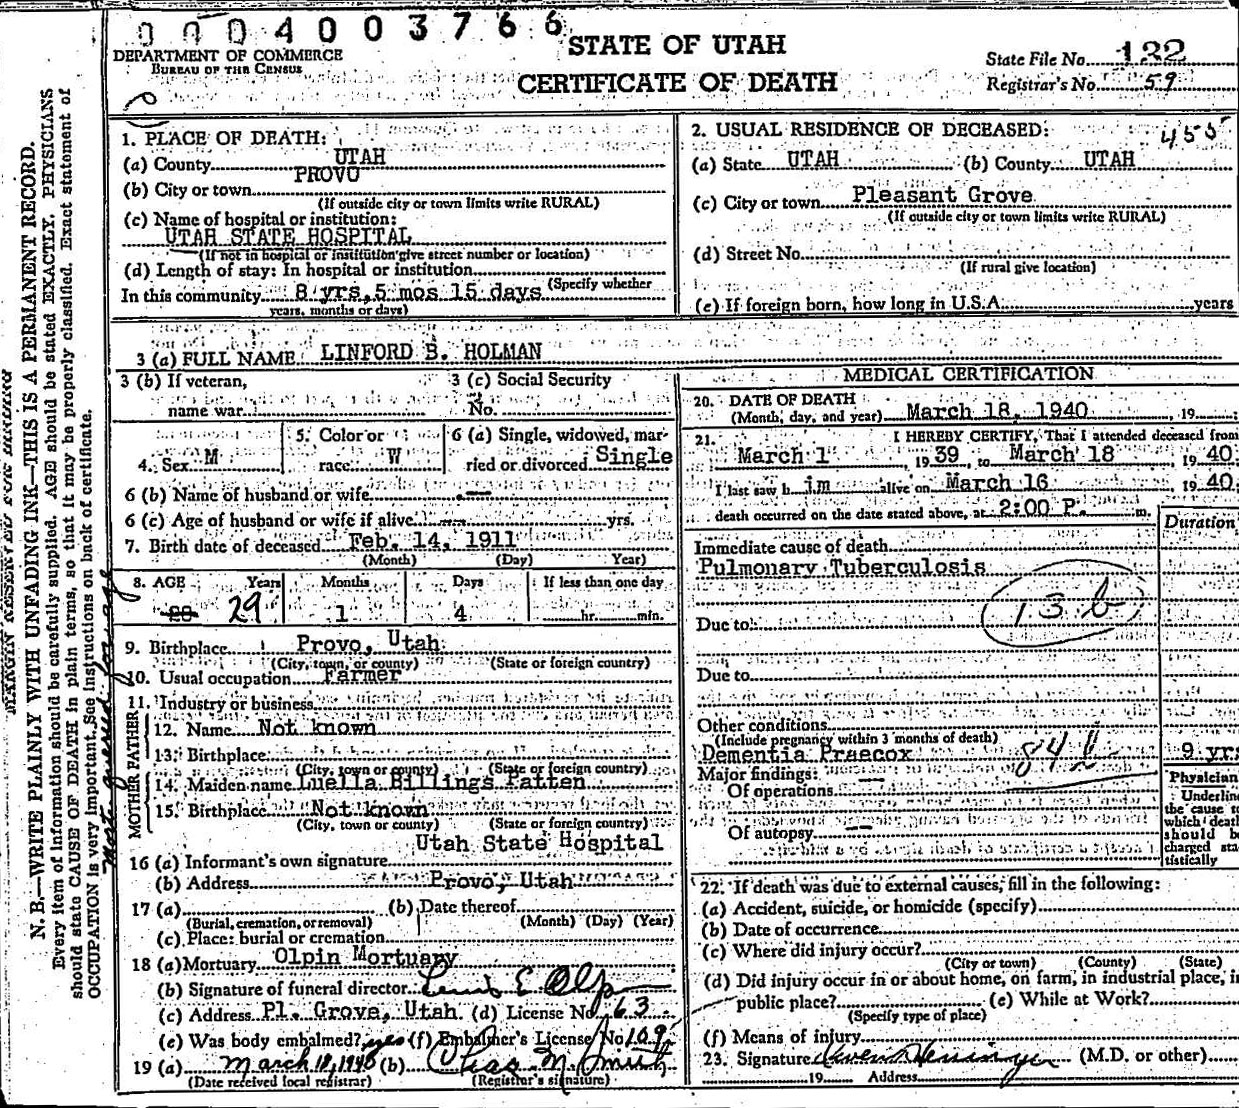 0004003766
DEPARTMENT OF COMMERCE
BUREAU OF THE CENSUS
STATE OF UTAH
CERTIFICATE OF DEATH
State File No. 132
Registrar's No. 59
1. PLACE OF DEATH:
(a) County UTAH
(b) City or town PROVO
(If outside city or town limits write RURAL)
(c) Name of hospital or institution:
UTAH STATE HOSPITAL
(If not in hospital or institution give street number or location)
(d) Length of stay: In hospital or institution
(Specify whether
In this community 8 yrs, 5 mos 15 days
years, months or days)
2. USUAL RESIDENCE OF DECEASED: 455
(a) State UTAH (b) County UTAH
(c) City or town Pleasant Grove
(If outside city or town limits write RURAL)
(d) Street No.
(If rural give location)
(e) If foreign born, how long in U.S.A. years
3 (a) FULL NAME LINFORD B. HOLMAN
3 (b) If veteran, name war
3 (c) Social Security No.
4. Sex M
5. Color or race W
6 (a) Single, widowed, married or divorced Single
6 (b) Name of husband or wife —
6 (c) Age of husband or wife if alive — yrs.
7. Birth date of deceased Feb. 14, 1911
(Month) (Day) Year)
8. AGE Years Months Days If less than one day
29 1 4 hr. min.
9. Birthplace Provo, Utah
(City, town, or county) (State or foreign country)
10. Usual occupation Farmer
11. Industry or business
FATHER
12. Name Not known
13. Birthplace
(City, town or county) (State or foreign country)
MOTHER
14. Maiden name Luella Billings Patten
15. Birthplace Not known
(City, town or county) (State or foreign country)
Utah State Hospital
16 (a) Informant's own signature
(b) Address Provo, Utah
17 (a) (b) Date thereof
(Burial, cremation, or removal) (Month) (Day) (Year)
(c) Place: burial or cremation
18 (a) Mortuary Olpin Mortuary
(b) Signature of funeral director
(c) Address Pl. Grove, Utah (d) License No. 63
(e) Was body embalmed? yes (f) Embalmer's License No. 109
19 (a) March 18, 1940 (b) Chas. M. Smith
(Date received local registrar) (Registrar's signature)
MEDICAL CERTIFICATION
20. DATE OF DEATH
(Month, day, and year) March 18, 1940, 19
21. I HEREBY CERTIFY, That I attended deceased from
March 1, 1939, to March 18 1940
I last saw him alive on March 16 1940
death occurred on the date stated above, at 2:00 P. m.
Duration
Immediate cause of death
Pulmonary Tuberculosis
13 b
Due to
Due to
Other conditions
(Include pregnancy within 3 months of death)
Dementia Praecox 84 9 yrs
Major findings:
Of operations —
Of autopsy —
Physician
Underline
the cause to
which death
should be
charged sta-
tistically
22. If death was due to external causes, fill in the following:
(a) Accident, suicide, or homicide (specify)
(b) Date of occurrence
(c) Where did injury occur?
(City or town) (County) (State)
(d) Did injury occur in or about home, on farm, in industrial place, in
public place? (e) While at Work?
(Specify type of place)
(f) Means of injury
23. Signature (M.D. or other)
19 Address
MARGIN RESERVED FOR BINDING
N. B.—WRITE PLAINLY WITH UNFADING INK—THIS IS A PERMANENT RECORD.
Every item of information should be carefully supplied. AGE should be stated EXACTLY. PHYSICIANS
should state CAUSE OF DEATH in plain terms, so that it may be properly classified. Exact statement of
OCCUPATION is very important. See instructions on back of certificate.